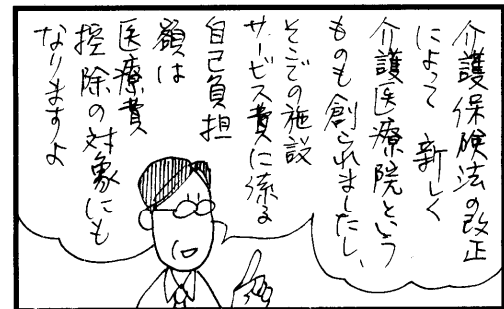 介護保険法の改正
によって 新しく
介護医療院という
ものも創られましたし、
そこでの施設
サービス費に係る
自己負担
額は
医療費
控除の対象にも
なりますよ